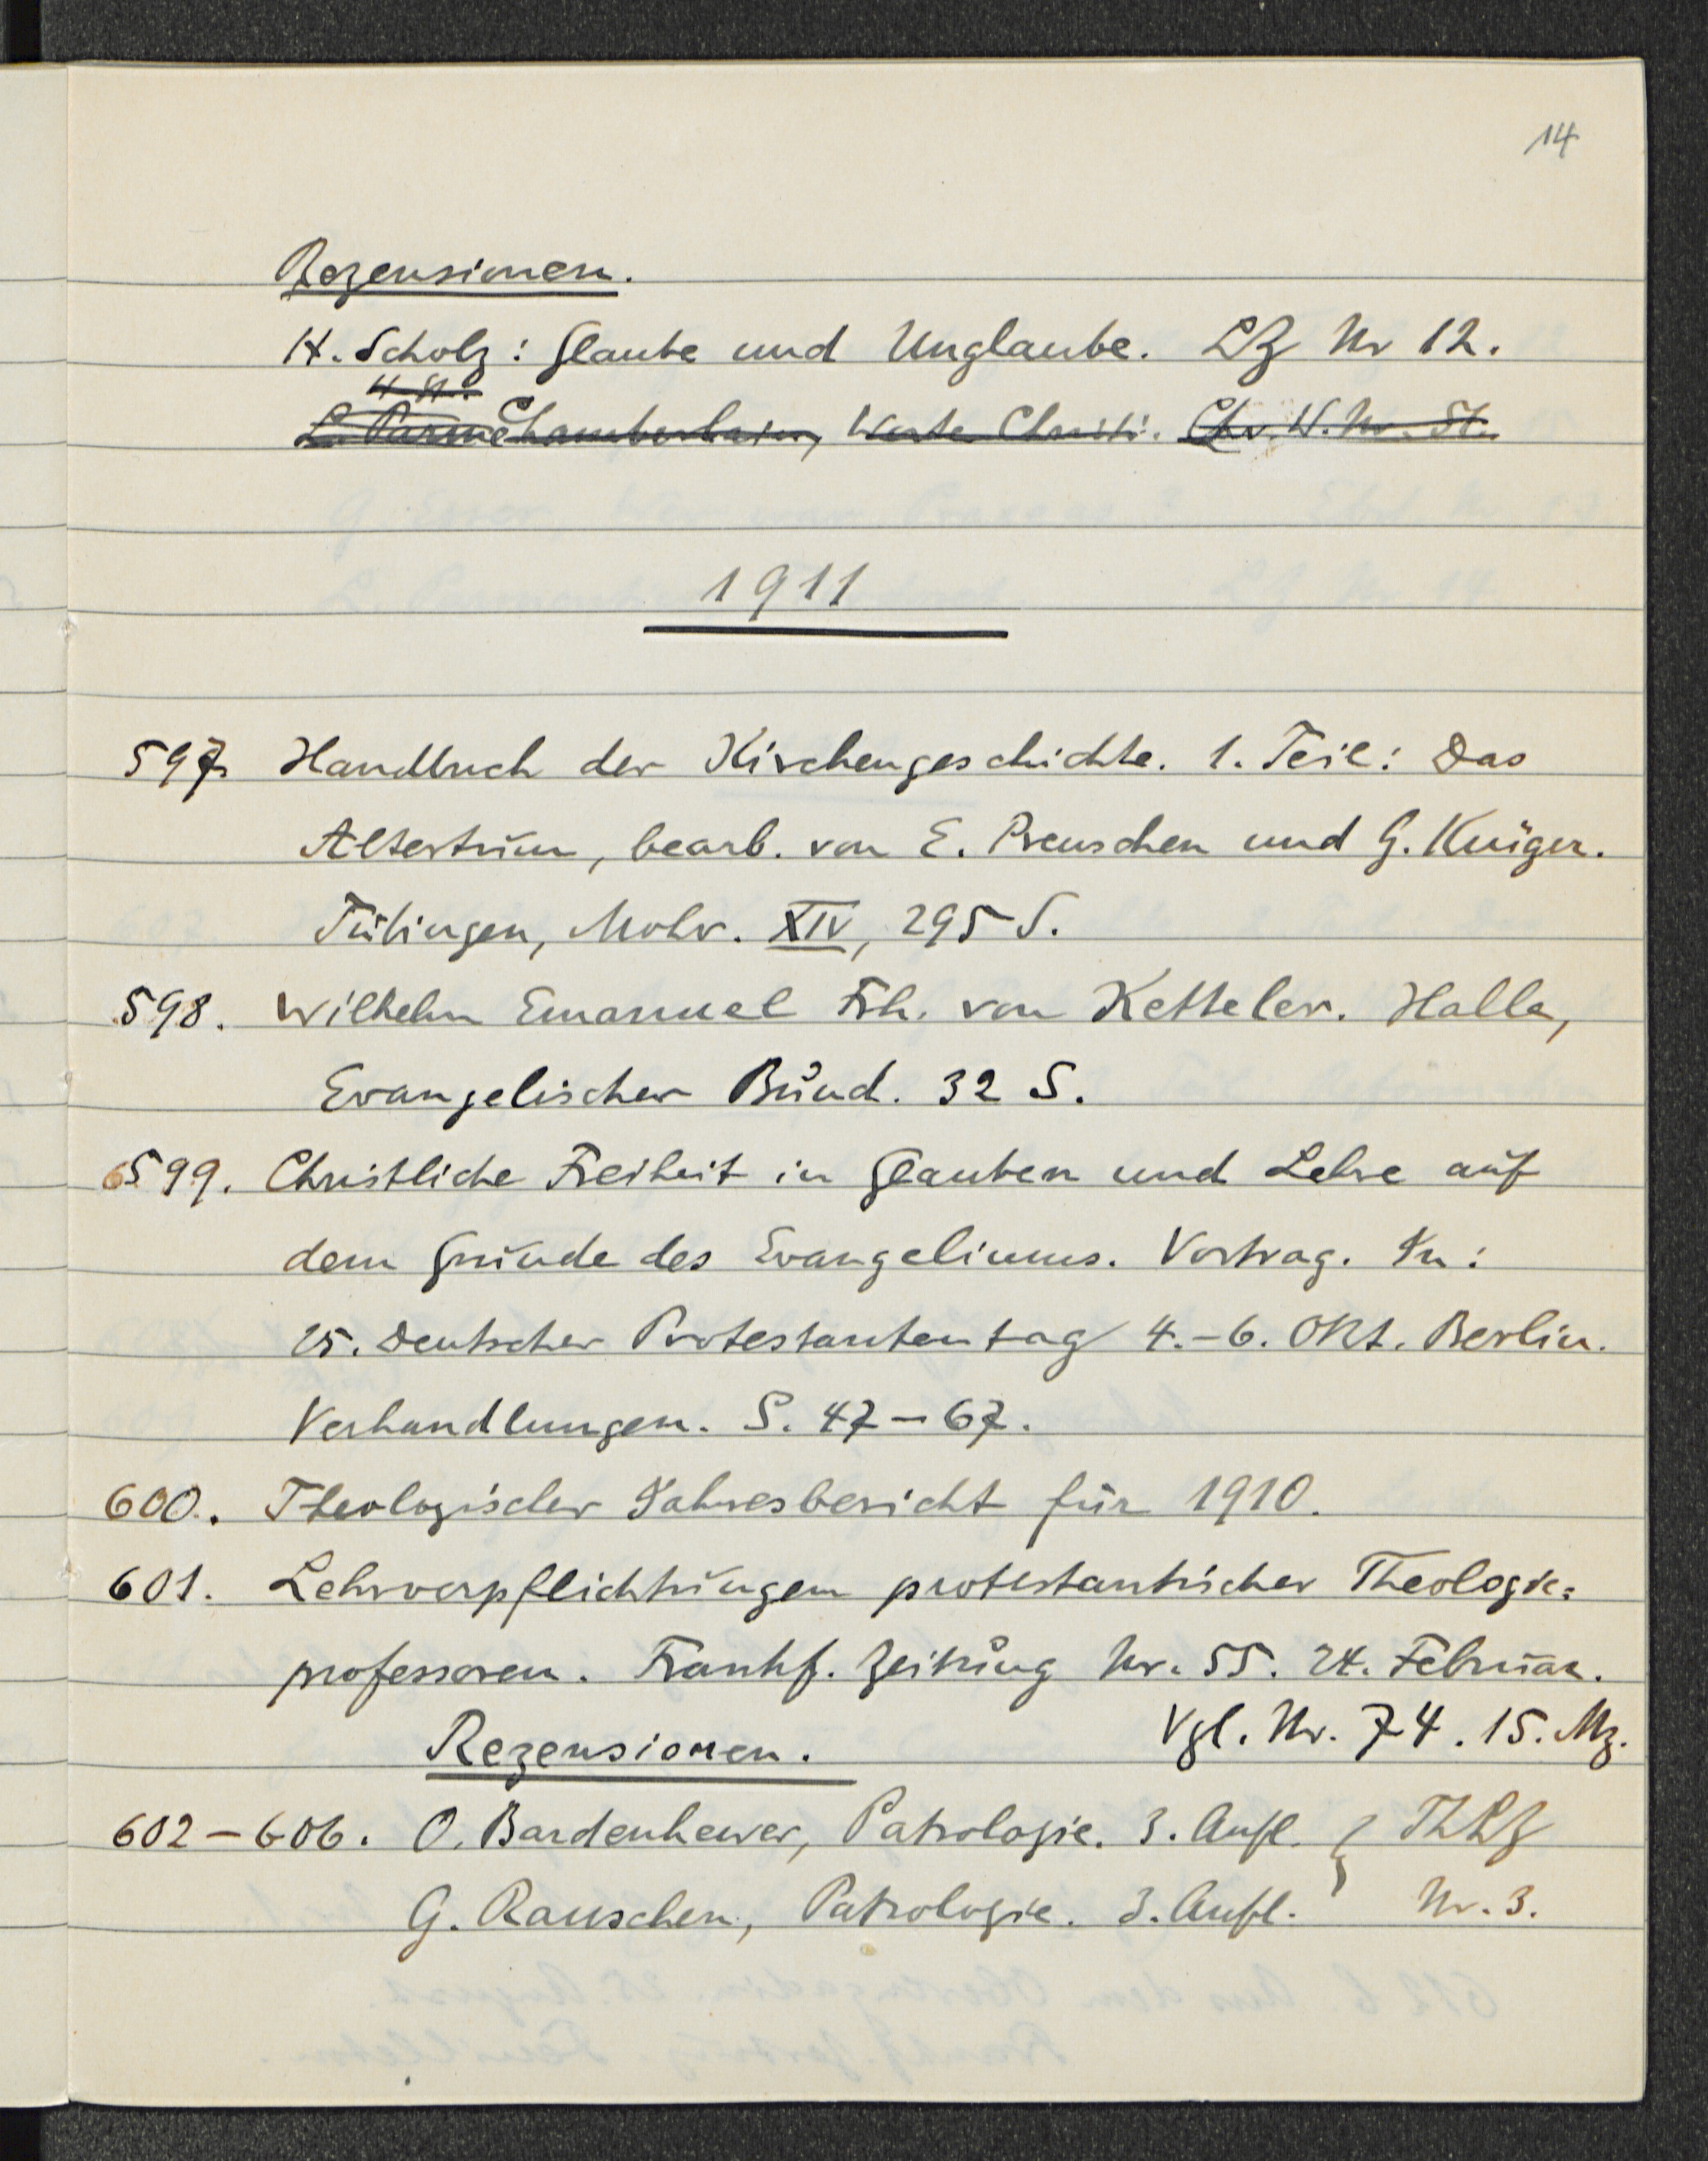 14
Rezensionen.
H. Scholz: Glaube und Unglaube. LZ Nr 12.
H. St.
Chamberlain, Worte Christi. Chr. W. Nr. 51.
1911
597. Handbuch der Kirchengeschichte. 1. Teil: Das
Altertum, bearb. von E. Preuschen und G. Krüger.
Tübingen, Mohr. XIV, 295 S.
598. Wilhelm Emanuel Frh. von Ketteler. Halle,
Evangelischer Bund. 32 S.
599. Christliche Freiheit in Glauben und Lehre auf
dem Grunde des Evangeliums. Vortrag. In:
25. Deutscher Protestantentag 4.-6. Okt. Berlin.
Verhandlungen. S. 47-67.
600. Theologischer Jahresbericht für 1910.
601. Lehrverpflichtungen protestantischer Theologie=
professoren. Frankf. Zeitung Nr. 55. 24. Februar.
Vgl. Nr. 74. 15. Mz.
Rezensionen.
602-606. O. Bardenhewer, Patrologie. 3. Aufl. } ThLZ
G. Rauschen, Patrologie. 3. Aufl. Nr. 3.